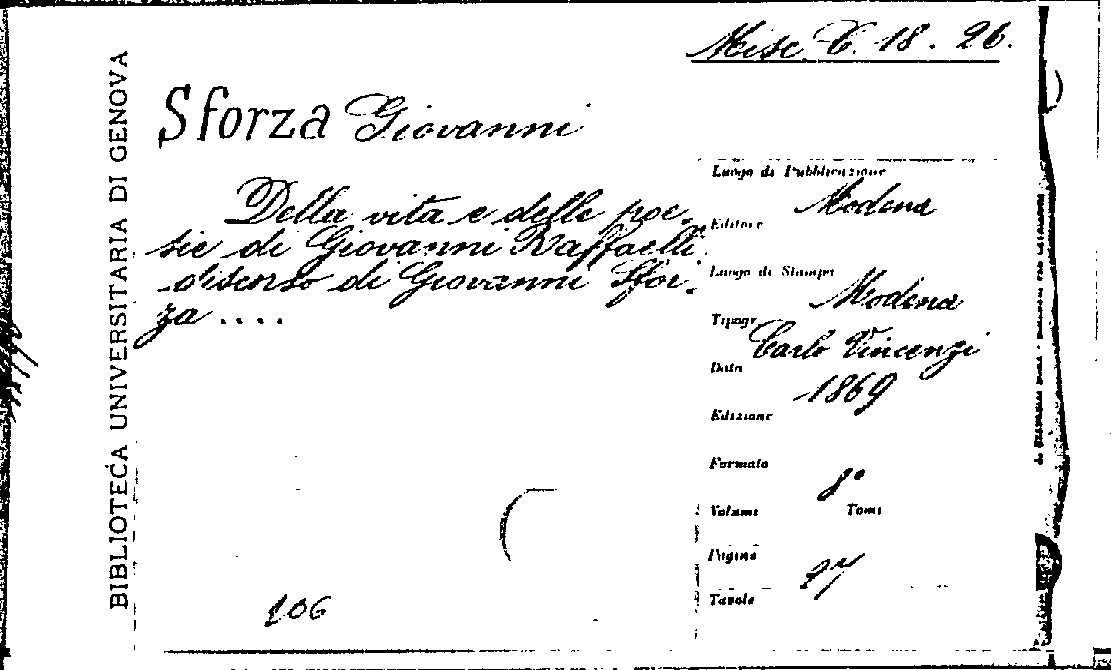 Misc. C. 18. 26.
BIBLIOTECA UNIVERSITARIA DI GENOVA
Sforza Giovanni
Della vita e delle poe-
sie di Giovanni Raffaelli.
discorso di Giovanni Sfor-
za ....
Luogo di Pubblicazione
Modena
Editore
Luogo di Stampa
Modena
Tipogr.
Carlo Vincenzi
Data
1869
Edizione
Formato
8°
Volumi Tomi
Pagine
27
Tavole
106